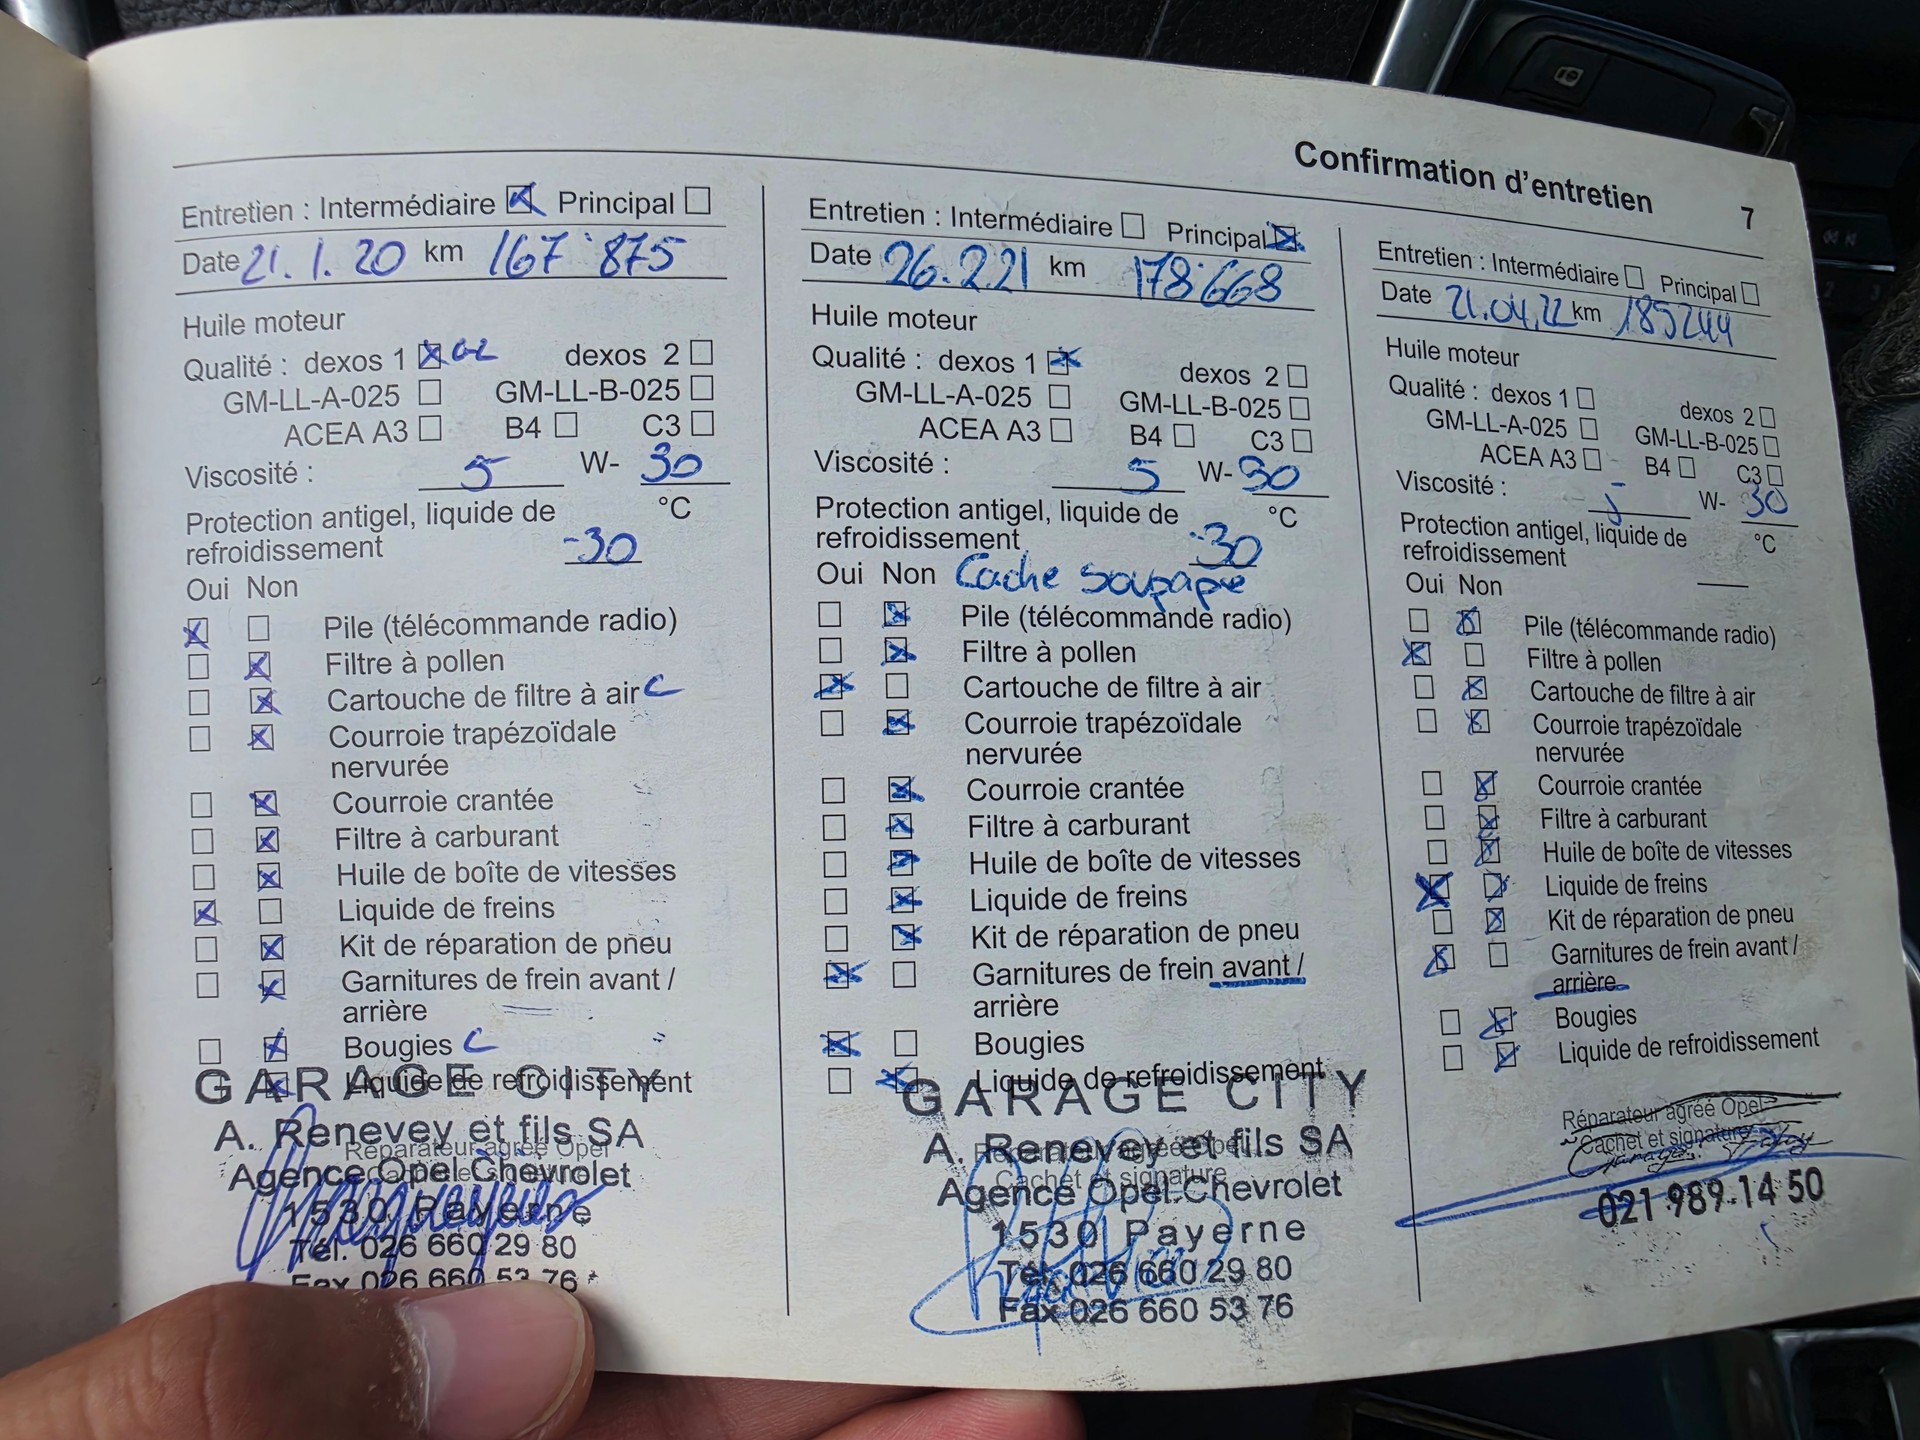 Confirmation d'entretien 7
Entretien : Intermédiaire Principal
Date 21. 1. 20 km 167'875
Huile moteur
Qualité : dexos 1 dexos 2
GM-LL-A-025 GM-LL-B-025
ACEA A3 B4 C3
Viscosité : 5 W- 30
Protection antigel, liquide de °C
refroidissement -30
Oui Non
Pile (télécommande radio)
Filtre à pollen
Cartouche de filtre à air C
Courroie trapézoïdale
nervurée
Courroie crantée
Filtre à carburant
Huile de boîte de vitesses
Liquide de freins
Kit de réparation de pneu
Garnitures de frein avant /
arrière
Bougies C
Liquide de refroidissement
GARAGE CITY
A. Renevey et fils SA
Réparateur agréé Opel
Agence Opel Chevrolet
1530 Payerne
Tél. 026 660 29 80
Fax 026 660 53 76
Entretien : Intermédiaire Principal
Date 26.2.21 km 178'668
Huile moteur
Qualité : dexos 1 dexos 2
GM-LL-A-025 GM-LL-B-025
ACEA A3 B4 C3
Viscosité : 5 W- 30
Protection antigel, liquide de °C
refroidissement -30
Oui Non Cache soupape
Pile (télécommande radio)
Filtre à pollen
Cartouche de filtre à air
Courroie trapézoïdale
nervurée
Courroie crantée
Filtre à carburant
Huile de boîte de vitesses
Liquide de freins
Kit de réparation de pneu
Garnitures de frein avant /
arrière
Bougies
Liquide de refroidissement
GARAGE CITY
A. Renevey et fils SA
Réparateur agréé Opel
Cachet et signature
Agence Opel-Chevrolet
1530 Payerne
Tél. 026 660 29 80
Fax 026 660 53 76
Entretien : Intermédiaire Principal
Date 21.04.22 km 185244
Huile moteur
Qualité : dexos 1 dexos 2
GM-LL-A-025 GM-LL-B-025
ACEA A3 B4 C3
Viscosité : 5 W- 30
Protection antigel, liquide de °C
refroidissement
Oui Non
Pile (télécommande radio)
Filtre à pollen
Cartouche de filtre à air
Courroie trapézoïdale
nervurée
Courroie crantée
Filtre à carburant
Huile de boîte de vitesses
Liquide de freins
Kit de réparation de pneu
Garnitures de frein avant /
arrière
Bougies
Liquide de refroidissement
Réparateur agréé Opel
Cachet et signature
021 989 14 50